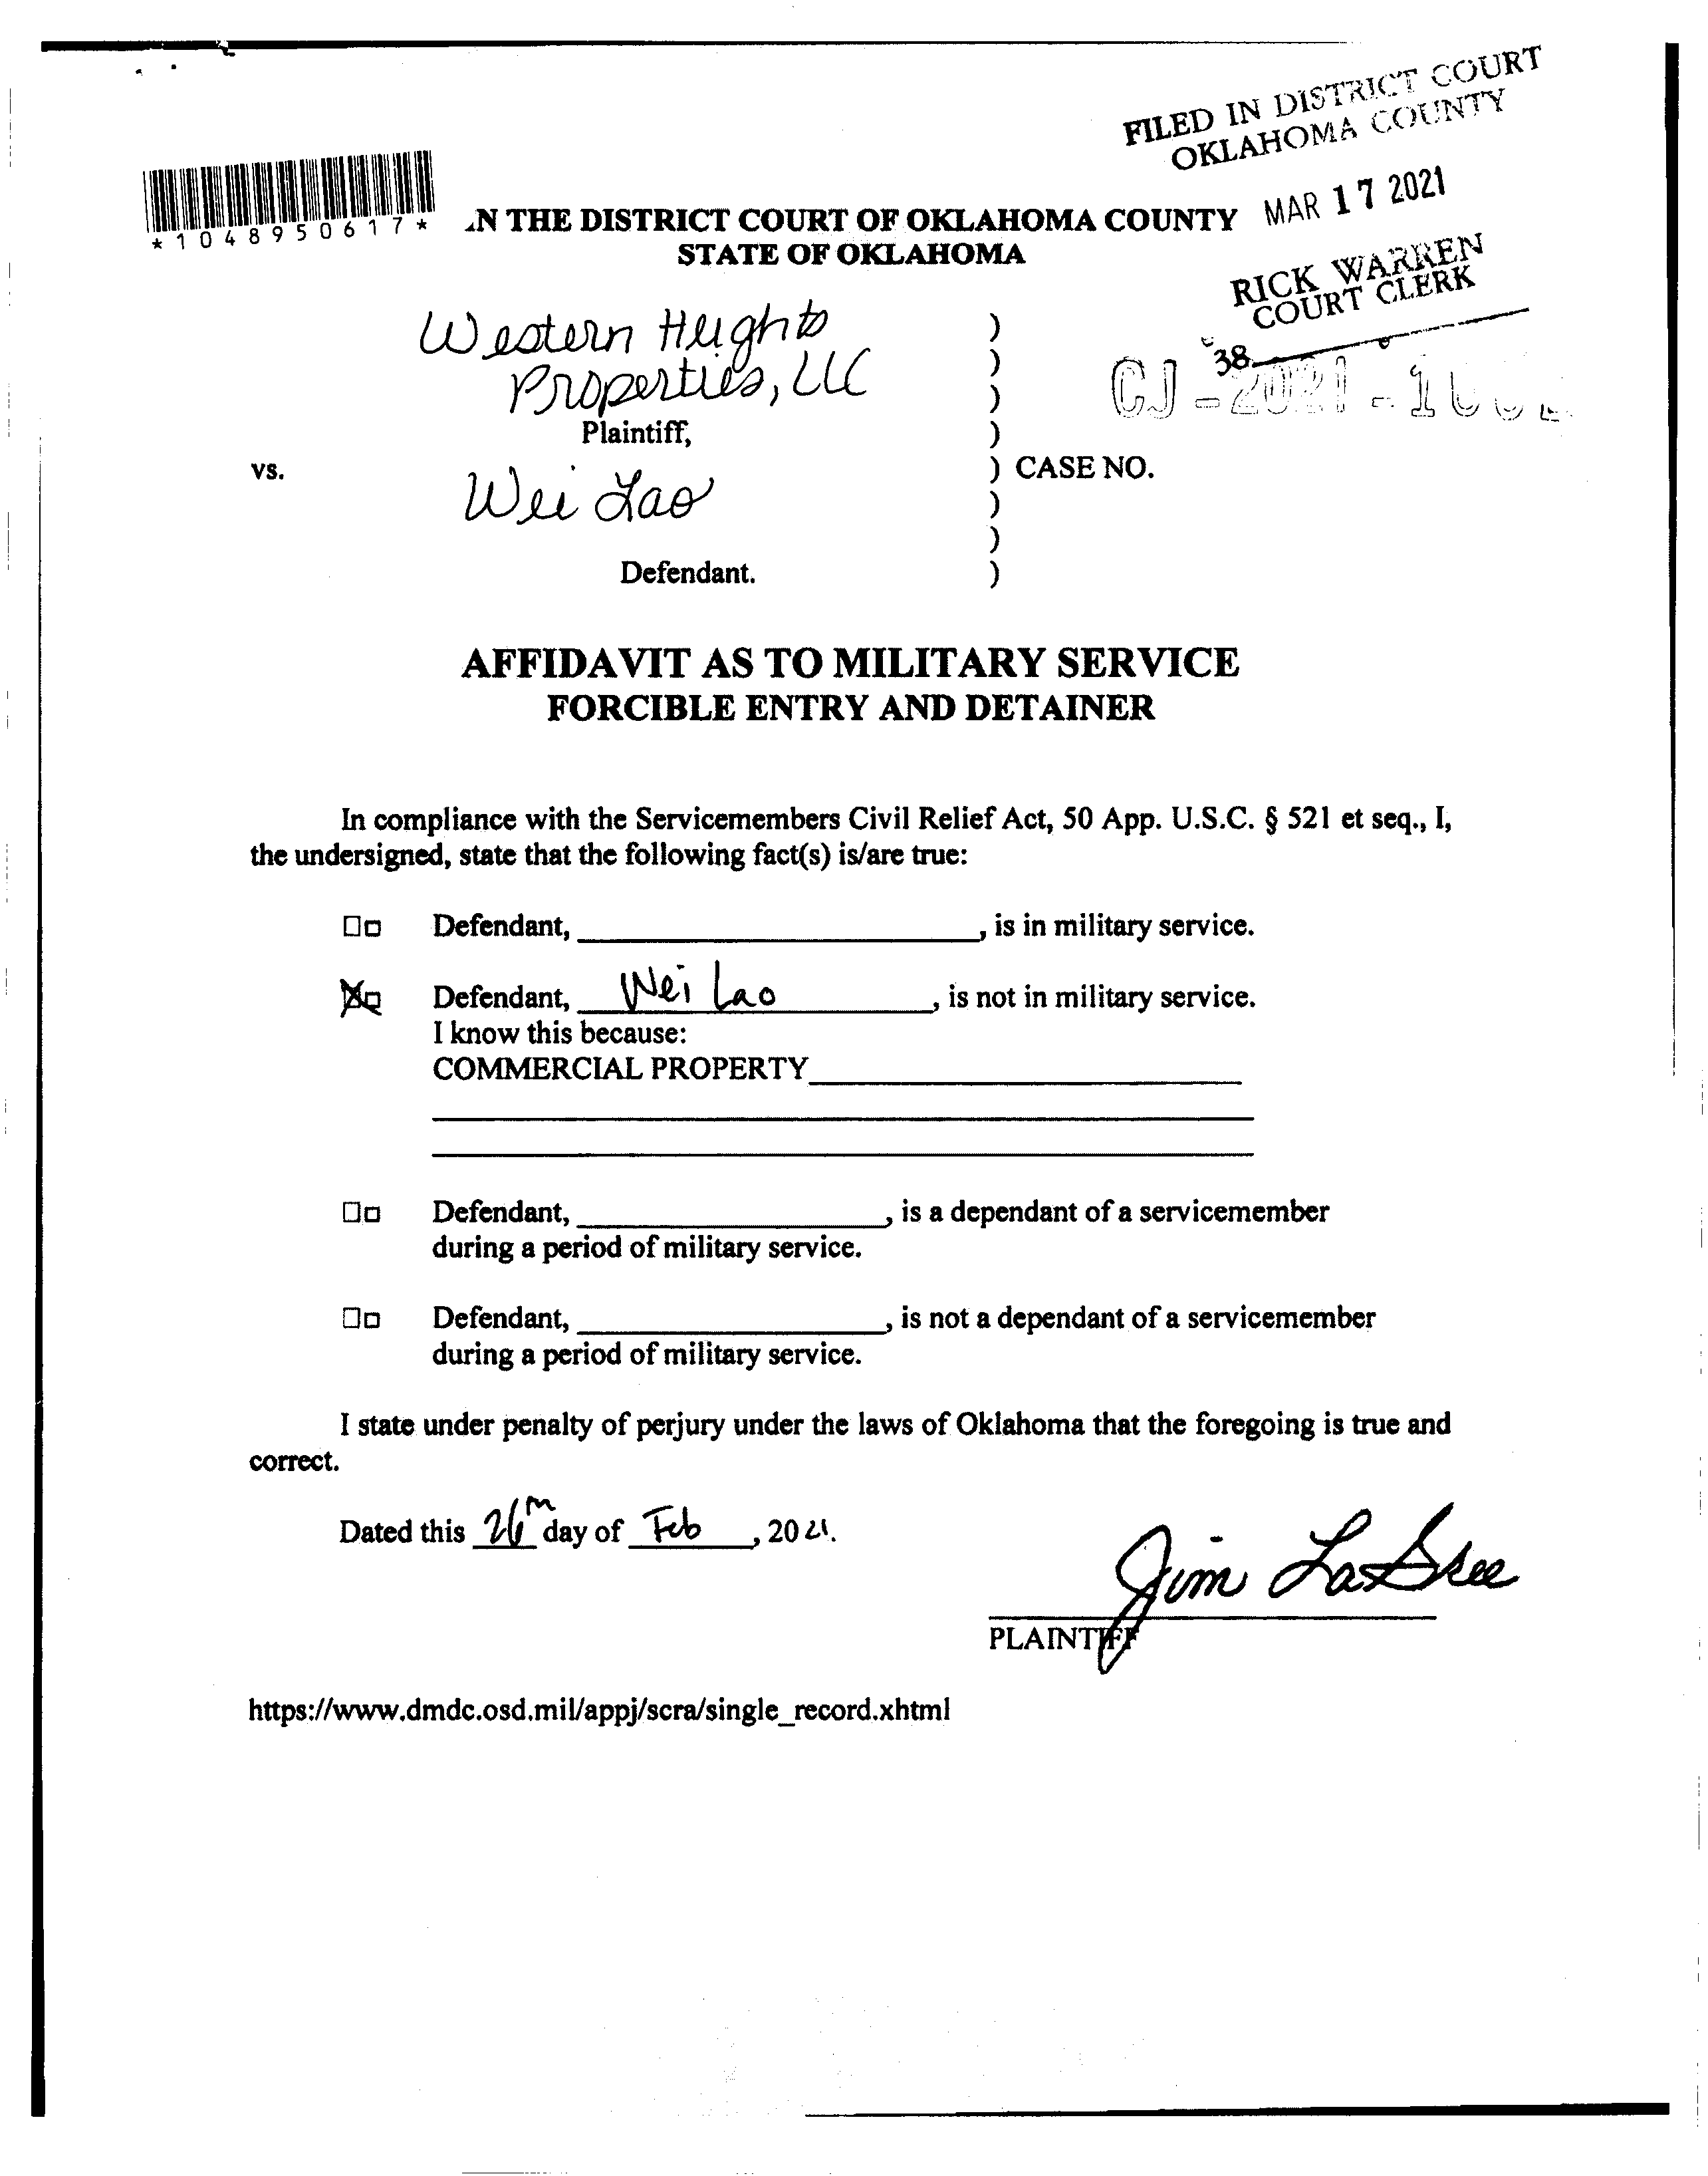 FILED IN DISTRICT COURT
OKLAHOMA COUNTY
MAR 17 2021
RICK WARREN
COURT CLERK
38
*1048950617*
IN THE DISTRICT COURT OF OKLAHOMA COUNTY
STATE OF OKLAHOMA
Western Heights
Properties, LLC
Plaintiff,
CJ-2021-
vs.
) CASE NO.
Wei Lao
Defendant.
AFFIDAVIT AS TO MILITARY SERVICE
FORCIBLE ENTRY AND DETAINER
In compliance with the Servicemembers Civil Relief Act, 50 App. U.S.C. § 521 et seq., I,
the undersigned, state that the following fact(s) is/are true:
Defendant, ____, is in military service.
Defendant, Wei Lao, is not in military service.
I know this because:
COMMERCIAL PROPERTY
Defendant, ____, is a dependant of a servicemember
during a period of military service.
Defendant, ____, is not a dependant of a servicemember
during a period of military service.
I state under penalty of perjury under the laws of Oklahoma that the foregoing is true and
correct.
Dated this 26th day of Feb, 2021.
Jim
PLAINTIFF
https://www.dmdc.osd.mil/appj/scra/single_record.xhtml